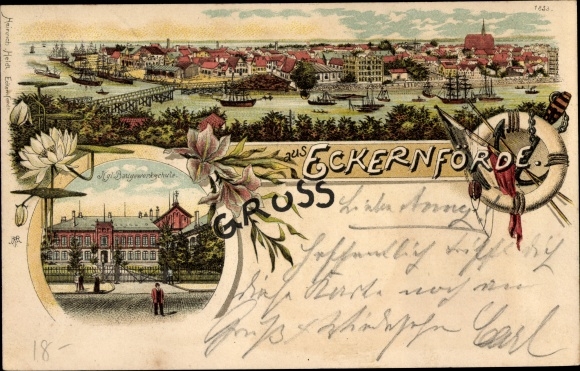 1823.
Heinrich Held, Eckernförde
GRUSS
aus ECKERNFÖRDE.
Kgl. Baugewerkschule.
Liebe Anny
Hoffentlich trifft dich
diese Karte noch an
Gruß & Wiedersehn Carl
18-